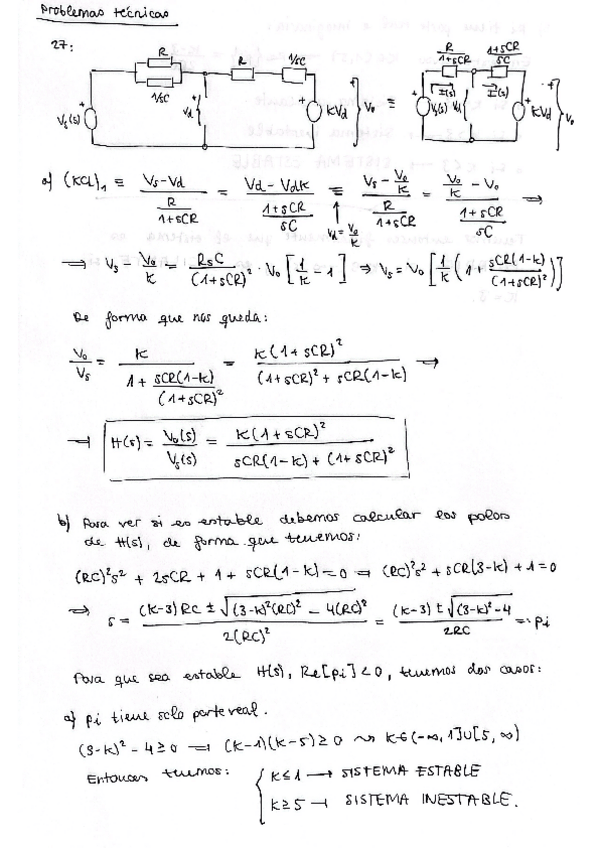 Problemas técnicos
27:
R
1/sC
R
1/sC
Vs(s)
Vd
KVd
Vo
≡
R/(1+sCR)
(1+sCR)/sC
I(s)
I(s)
Vs(s)
Vd
KVd
Vo
a) (KCL)₁ ≡ (Vs-Vd)/(R/(1+sCR)) = (Vd-VdK)/((1+sCR)/sC) ≡ (Vs-Vo/K)/(R/(1+sCR)) = (Vo/K-Vo)/((1+sCR)/sC) →
Vd=Vo/K
⇒ Vs - Vo/K = RsC/(1+sCR)² · Vo [1/K - 1] ⇒ Vs = Vo [1/K (1 + sCR(1-K)/(1+sCR)²)]
De forma que nos queda:
Vo/Vs = K/(1 + sCR(1-K)/(1+sCR)²) = K(1+sCR)²/((1+sCR)² + sCR(1-K)) →
→ H(s) = Vo(s)/Vs(s) = K(1+sCR)²/(sCR(1-K) + (1+sCR)²)
b) Para ver si es estable debemos calcular los polos
de H(s), de forma que tenemos:
(RC)²s² + 2sCR + 1 + sCR(1-K) = 0 ⇒ (RC)²s² + sCR(3-K) + 1 = 0
⇒ s = ((K-3)RC ± √((3-K)²(RC)² - 4(RC)²))/(2(RC)²) = ((K-3) ± √((3-K)²-4))/(2RC) =: pi
Para que sea estable H(s), Re[pi]<0, tenemos dos casos:
a) pi tiene solo parte real.
(3-K)² - 4 ≥ 0 ⇒ (K-1)(K-5) ≥ 0 ⇝ K∈(-∞, 1]∪[5, ∞)
Entonces tenemos: { K≤1 → SISTEMA ESTABLE
K≥5 → SISTEMA INESTABLE.